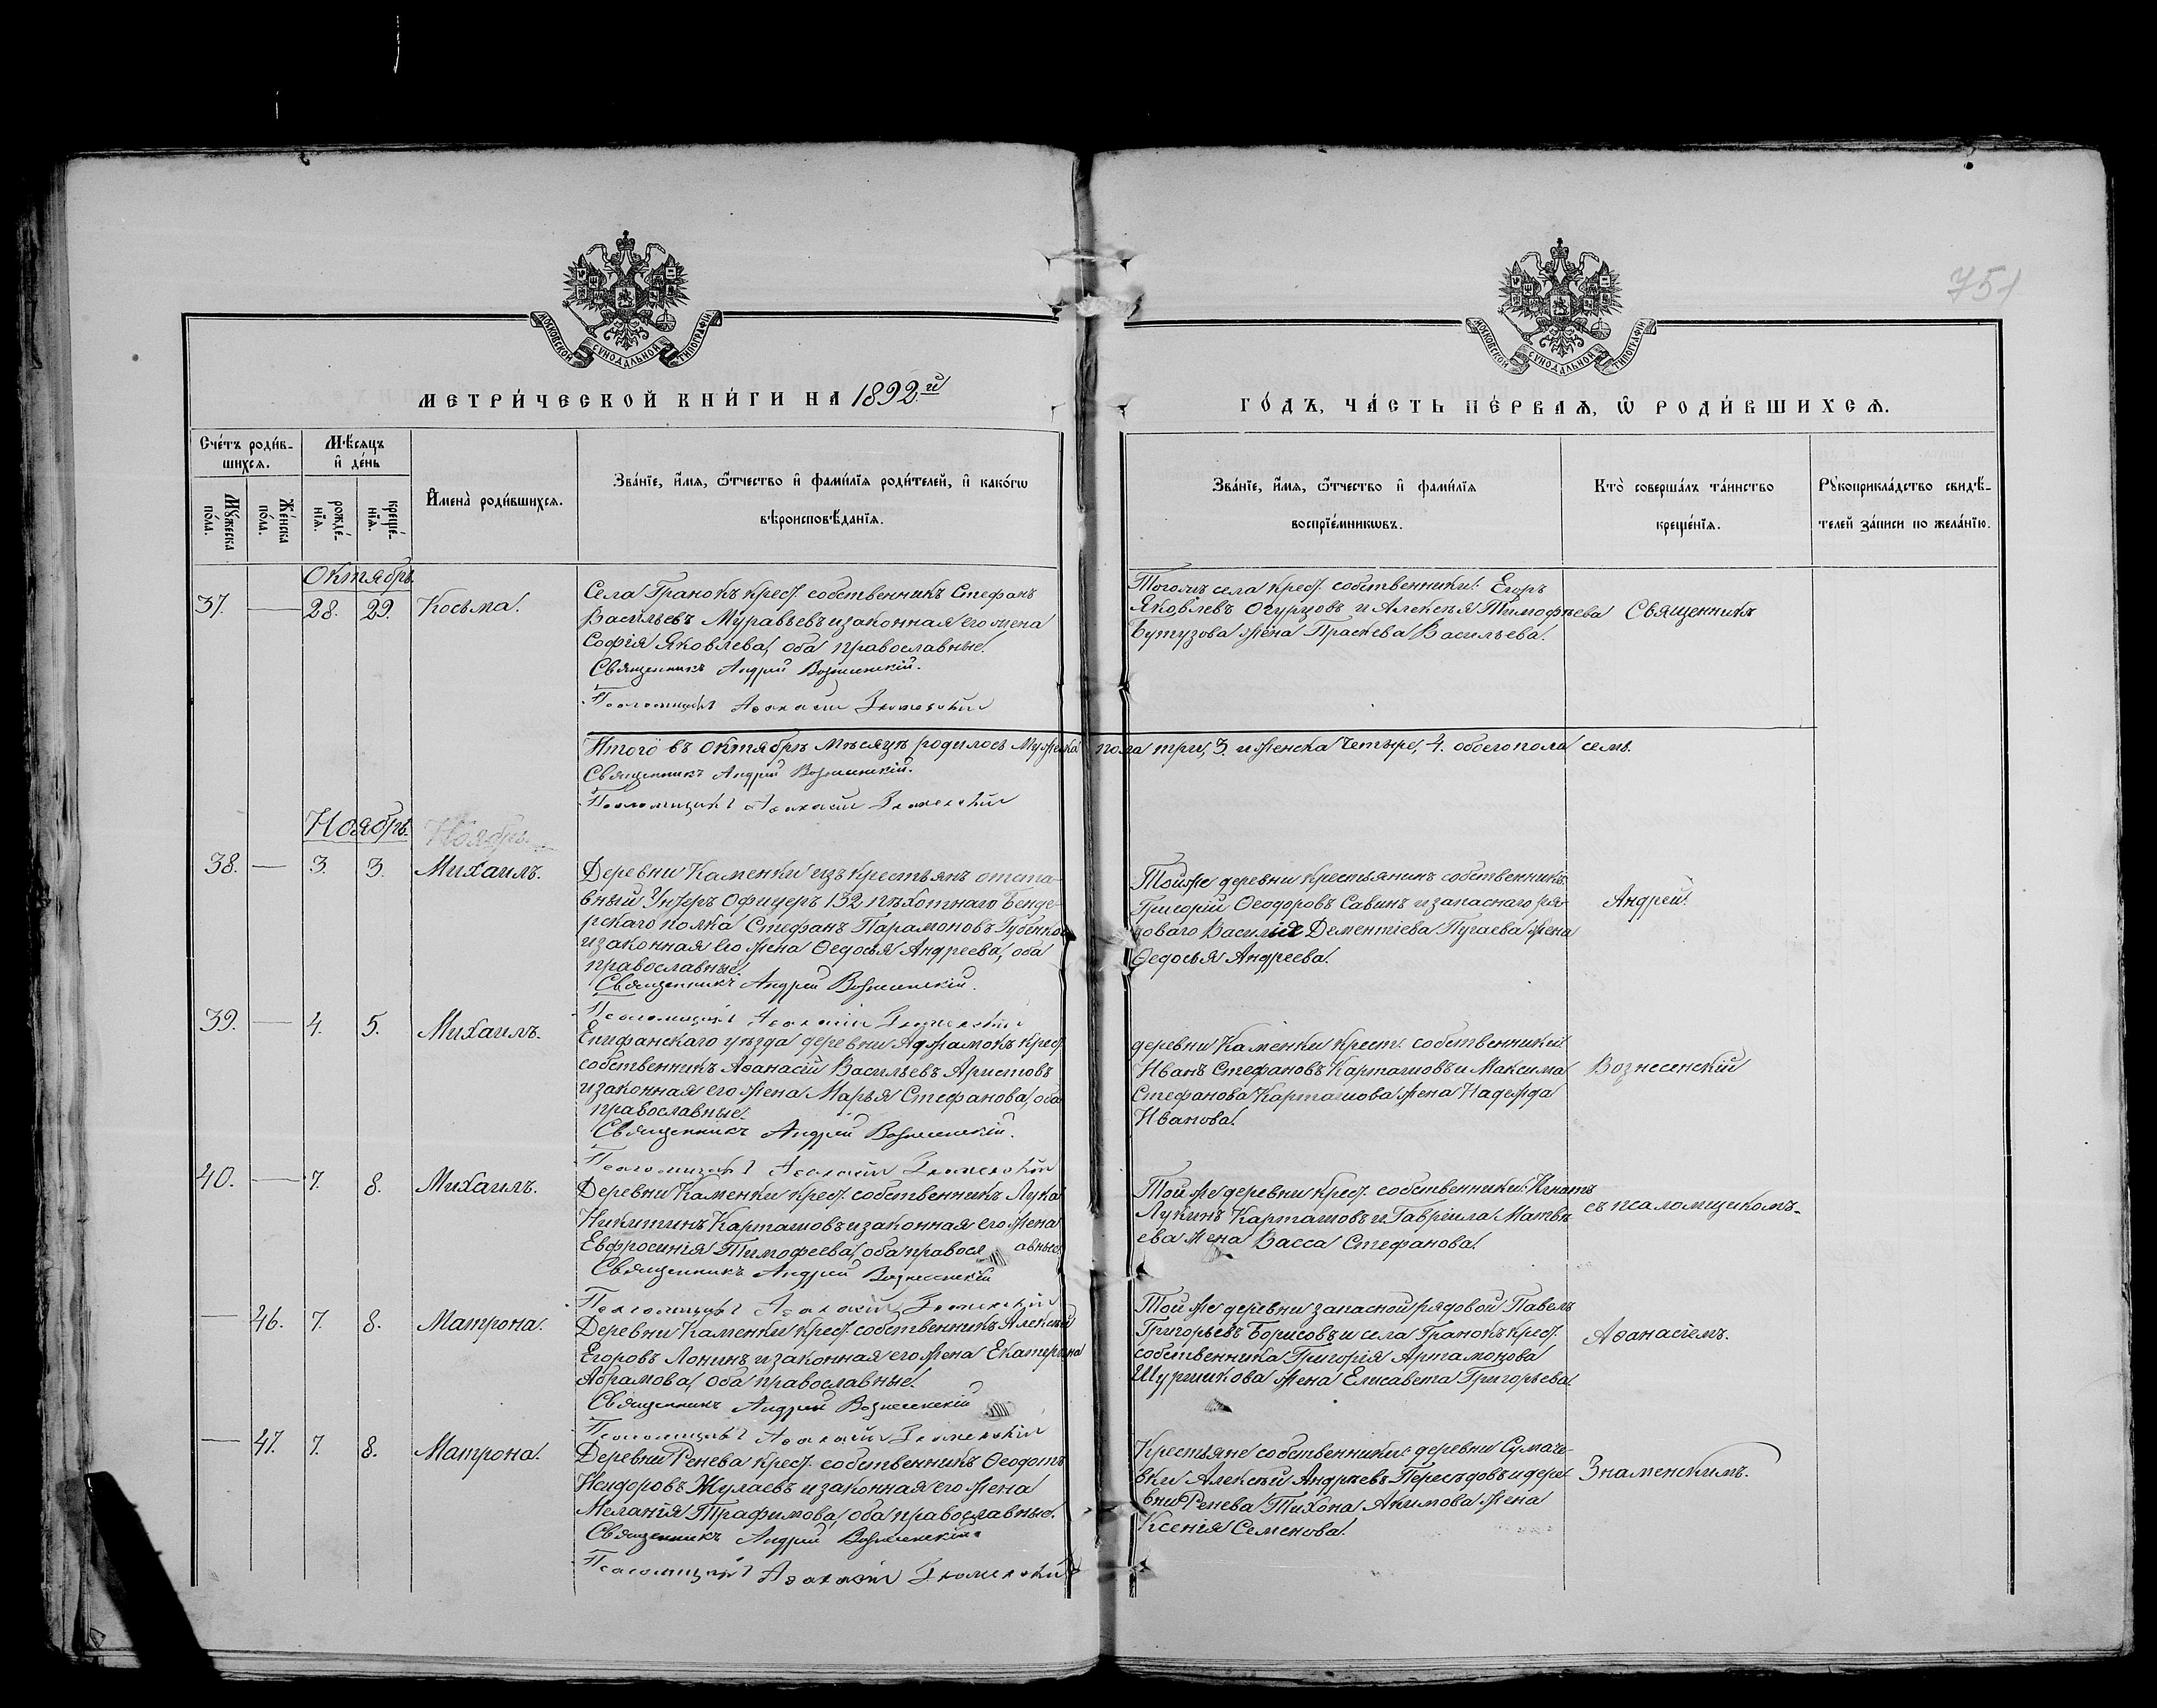 751
МОСКОВСКОЙ СѴНОДАЛЬНОЙ ТИПОГРАФІИ
МОСКОВСКОЙ СѴНОДАЛЬНОЙ ТИПОГРАФІИ
МЕТРИ́ЧЕСКОЙ КНИ́ГИ НА 1892й
ГО́ДЪ, ЧА́СТЬ ПЕ́РВАѦ, Ѡ РОДИ́ВШИХСѦ.
Сче́тъ роди́в-
шихсѧ.
Мѣ́сѧцъ
и҆ де́нь
Мꙋ́жеска
по́ла.
Же́нска
по́ла.
рожде́-
нїѧ.
креще́-
нїѧ.
И҆мена̀ роди́вшихсѧ.
Зва́нїе, и҆́мѧ, ѻ҆́тчество и҆ фами́лїѧ роди́телей, и҆ како́гѡ
вѣроисповѣ́данїѧ.
Зва́нїе, и҆́мѧ, ѻ҆́тчество и҆ фами́лїѧ
воспрїе́мникѡвъ.
Кто̀ соверша́лъ та́инство
креще́нїѧ.
Рꙋкоприкла́дство свидѣ́-
телей за́писи по жела́нїю.
Октябрь
37. — 28. 29. Косьма.
Села Гранокъ крест. собственникъ Стефанъ
Васильевъ Муравьевъ и законная его жена
Софія Яковлева, оба православные.
Священникъ Андрей Вознесенскій.
Псаломщикъ Аѳанасій Знаменскій
Тогожъ села крест. собственники: Егоръ
Яковлевъ Огурцовъ и Алексѣя Тимофѣева
Бутузова жена Праскева Васильева.
Священникъ
Итого въ октябрѣ мѣсяцѣ родилось мужска пола три, 3. и женска четыре, 4. обоего пола семь.
Священникъ Андрей Вознесенскій.
Псаломщикъ Аѳанасій Знаменскій
Ноябрь. Ноябрь.
38. — 3. 3. Михаилъ.
Деревни Каменки изъ крестьянъ отста-
вный Унтеръ Офицеръ 132 пѣхотнаго Бенде-
рскаго полка Стефанъ Парамоновъ Губенко
и законная его жена Ѳедосья Андреева, оба
православные.
Священникъ Андрей Вознесенскій.
Псаломщикъ Аѳанасій Знаменскій
Тойже деревни крестьянинъ собственникъ
Григорій Ѳеодоровъ Савинъ и запаснаго ря-
доваго Василія Дементіева Пугаева жена
Ѳедосья Андреева.
Андрей
39. — 4. 5. Михаилъ.
Епифанскаго уѣзда деревни Аджамокъ крест
собственникъ Аѳанасій Васильевъ Аристовъ
и законная его жена Марья Стефанова, оба
православные.
Священникъ Андрей Вознесенскій.
Псаломщикъ Аѳанасій Знаменскій
деревни Каменки крест. собственники
Иванъ Стефановъ Карташовъ и Максима
Стефанова Карташова жена Надежда
Иванова.
Вознесенскій
40. — 7. 8. Михаилъ.
Деревни Каменки крест. собственникъ Лука
Никитинъ Карташовъ и законная его жена
Евфросинія Тимофеева, оба православные.
Священникъ Андрей Вознесенскій
Псаломщикъ Аѳанасій Знаменскій
Той же деревни крест. собственники: Игнатъ
Лукинъ Карташовъ и Гавріила Матвѣ-
ева жена Васса Стефанова.
съ псаломщикомъ-
— 46. 7. 8. Матрона.
Деревни Каменки крест. собственникъ Алексѣй
Егоровъ Лонинъ и законная его жена Екатерина
Абрамова, оба православные.
Священникъ Андрей Вознесенскій
Псаломщикъ Аѳанасій Знаменскій
Той же деревни запасной рядовой Павелъ
Григорьевъ Борисовъ и села Гранокъ крест.
собственника Григорія Артамонова
Шуршикова жена Елисавета Григорьева.
Аѳанасіемъ.
— 47. 7. 8. Матрона.
Деревни Ренева крест. собственникъ Ѳеодотъ
Исидоровъ Жулаевъ и законная его жена
Меланія Трафимова, оба православные.
Священникъ Андрей Вознесенскій.
Псаломщикъ Аѳанасій Знаменскій
Крестьяне собственники: деревни Сумаче-
вки Алексѣй Андреевъ Пересѣдовъ и дере-
вни Ренева Тихона Акимова жена
Ксенія Семенова.
Знаменскимъ.